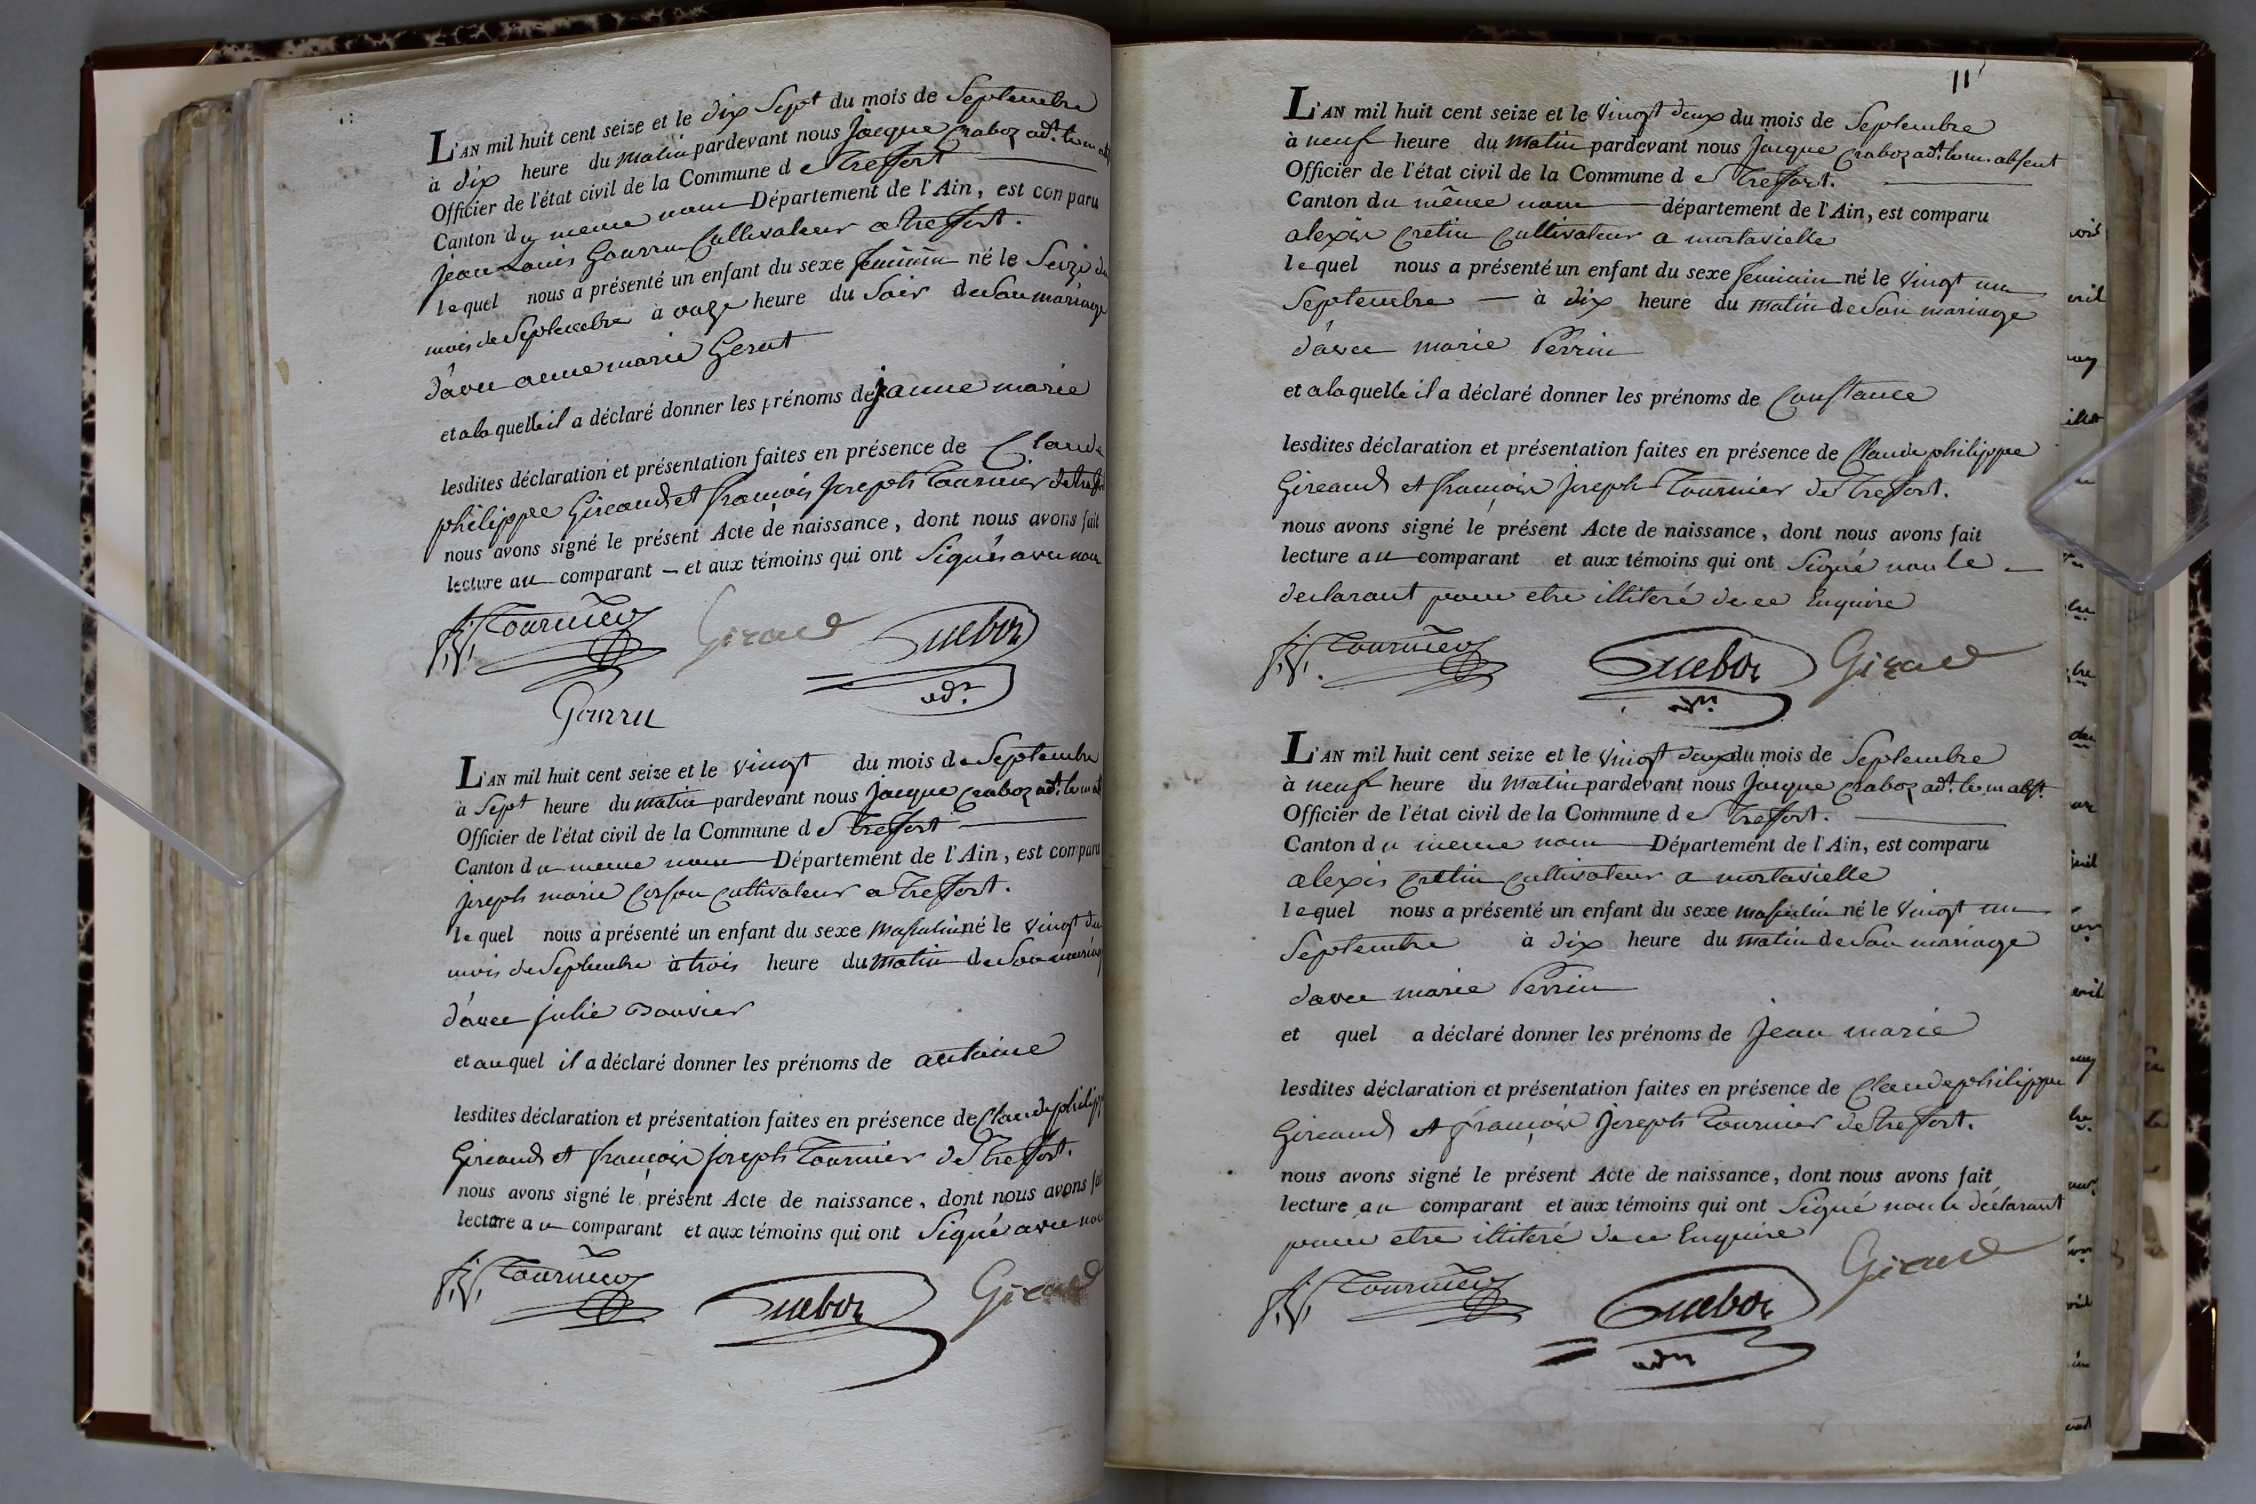 L'AN mil huit cent seize et le dix Sept du mois de Septembre
à dix heure du matin pardevant nous Jacque adt. le m
Officier de l'état civil de la Commune d e Treffort
Canton du meme nom Département de l'Ain, est comparu
jean Louis Gourru Cultivateur a treffort.
lequel nous a présenté un enfant du sexe feminin né le Seize du
mois de Septembre à onze heure du Soir de Son mariage
d'avec anne marie Gerut
et a la quelle il a déclaré donner les prénoms de janne marie
lesdites déclaration et présentation faites en présence de Claude
philippe Gireaud et françois joseph Tournier de
nous avons signé le présent Acte de naissance, dont nous avons fait
lecture au comparant et aux témoins qui ont Signés avec nous
f. j. Tournier Giraud adt.
Gourru
L'AN mil huit cent seize et le vingt du mois de Septembre
à Sept heure du matin pardevant nous Jacque adt. le m
Officier de l'état civil de la Commune d e Treffort
Canton du meme nom Département de l'Ain, est comparu
joseph marie cultivateur a Treffort.
lequel nous a présenté un enfant du sexe Masculin né le vingt du
mois de Septembre à trois heure du matin de Son mariage
d'avec julie Bouvier
et auquel il a déclaré donner les prénoms de antoine
lesdites déclaration et présentation faites en présence de Claude philippe
Gireaud et françois joseph Tournier de Treffort.
nous avons signé le présent Acte de naissance, dont nous avons fait
lecture au comparant et aux témoins qui ont Signé avec nous
f. j. Tournier Giraud
11
L'AN mil huit cent seize et le vingt deux du mois de Septembre
à neuf heure du matin pardevant nous Jacque adt. le m. absent
Officier de l'état civil de la Commune d e Treffort.
Canton du même nom département de l'Ain, est comparu
alexis cretin cultivateur a montavielle
lequel nous a présenté un enfant du sexe feminin né le vingt un
Septembre à dix heure du matin de Son mariage
d'avec marie Perrin
et a la quelle il a déclaré donner les prénoms de Constance
lesdites déclaration et présentation faites en présence de Claude philippe
Gireaud et françois joseph Tournier de Treffort.
nous avons signé le présent Acte de naissance, dont nous avons fait
lecture au comparant et aux témoins qui ont Signé non le
declarant pour etre illiteré de ce Enquire
f. j. Tournier Giraud
L'AN mil huit cent seize et le vingt deux du mois de Septembre
à neuf heure du matin pardevant nous Jacque adt. le m abst.
Officier de l'état civil de la Commune d e Treffort.
Canton du meme nom Département de l'Ain, est comparu
alexis cretin cultivateur a montavielle
lequel nous a présenté un enfant du sexe masculin né le vingt un
Septembre à dix heure du matin de Son mariage
d'avec marie Perrin
et quel a déclaré donner les prénoms de Jean marie
lesdites déclaration et présentation faites en présence de Claude philippe
Gireaud et françois joseph Tournier de treffort.
nous avons signé le présent Acte de naissance, dont nous avons fait
lecture au comparant et aux témoins qui ont Signé non le déclarant
pour etre illiteré de ce Enquire
f. j. Tournier Giraud